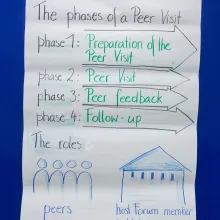 The phases of a Peer Visit
phase 1: Preparation of the
Peer Visit
phase 2: Peer Visit
phase 3: Peer feedback
phase 4: Follow-up
The roles
peers
host Forum member